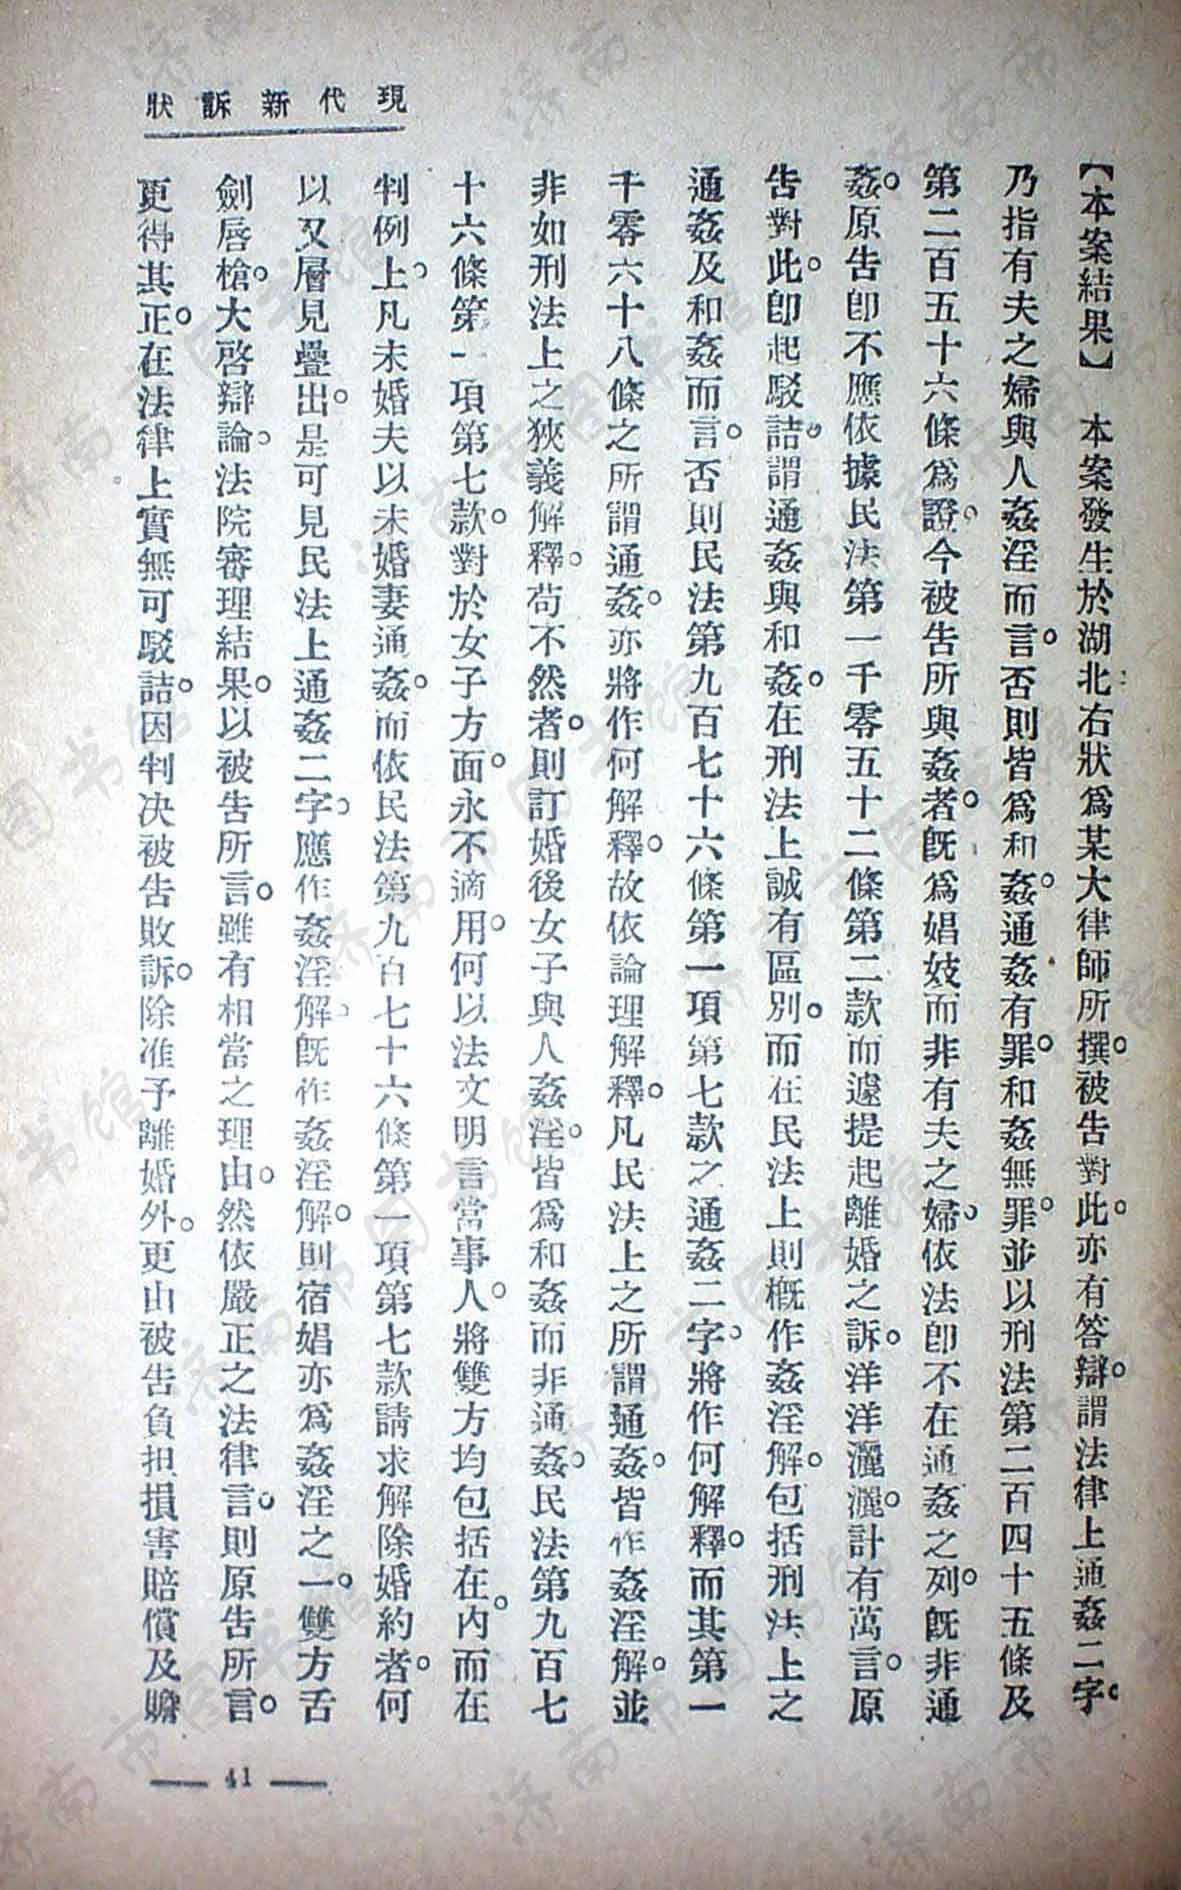 現代新訴狀
【本案結果】　本案發生於湖北右狀爲某大律師所撰。被告對此。亦有答辯。謂法律上通姦二字。
乃指有夫之婦與人姦淫而言。否則皆爲和姦。通姦有罪。和姦無罪。並以刑法第二百四十五條及
第二百五十六條爲證。今被告所與姦者。旣爲娼妓而非有夫之婦。依法卽不在通姦之列。旣非通
姦。原告卽不應依據民法第一千零五十二條第二款而遽提起離婚之訴。洋洋灑灑。計有萬言。原
告對此。卽起駁詰。謂通姦與和姦。在刑法上誠有區別。而在民法上則槪作姦淫解。包括刑法上之
通姦及和姦而言。否則民法第九百七十六條第一項第七款之通姦二字。將作何解釋。而其第一
千零六十八條之所謂通姦。亦將作何解釋。故依論理解釋。凡民法上之所謂通姦。皆作姦淫解。並
非如刑法上之狹義解釋。苟不然者。則訂婚後女子與人姦淫。皆爲和姦而非通姦。民法第九百七
十六條第一項第七款。對於女子方面。永不適用。何以法文明言當事人。將雙方均包括在內。而在
判例上。凡未婚夫以未婚妻通姦。而依民法第九百七十六條第一項第七款請求解除婚約者。何
以又層見疊出。是可見民法上通姦二字。應作姦淫解。旣作姦淫解。則宿娼亦爲姦淫之一。雙方舌
劍唇槍。大啓辯論。法院審理結果。以被告所言。雖有相當之理由。然依嚴正之法律言。則原告所言。
更得其正。在法律上實無可駁詰。因判决被告敗訴。除准予離婚外。更由被告負担損害賠償及贍
— 41 —
济南市图书馆